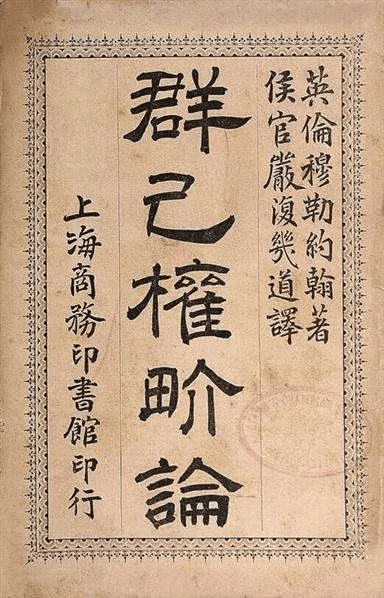 英倫穆勒約翰著
侯官嚴復幾道譯
群己權畍論
上海商務印書館印行